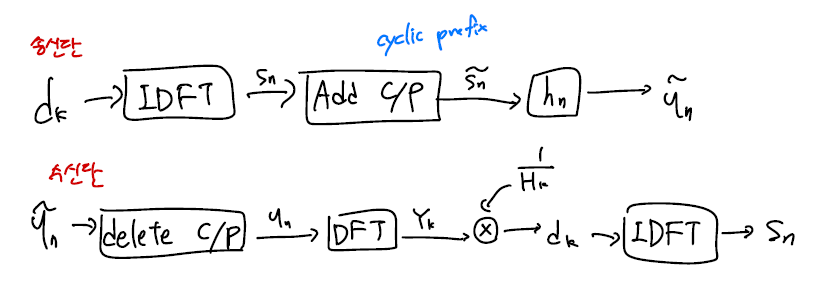 송신단
cyclic prefix
d_k → IDFT → s_n → Add C/P → s̃_n → h_n → ỹ_n
수신단
1/H_k
ỹ_n → delete C/P → y_n → DFT → Y_k → ⊗ → d_k → IDFT → s_n